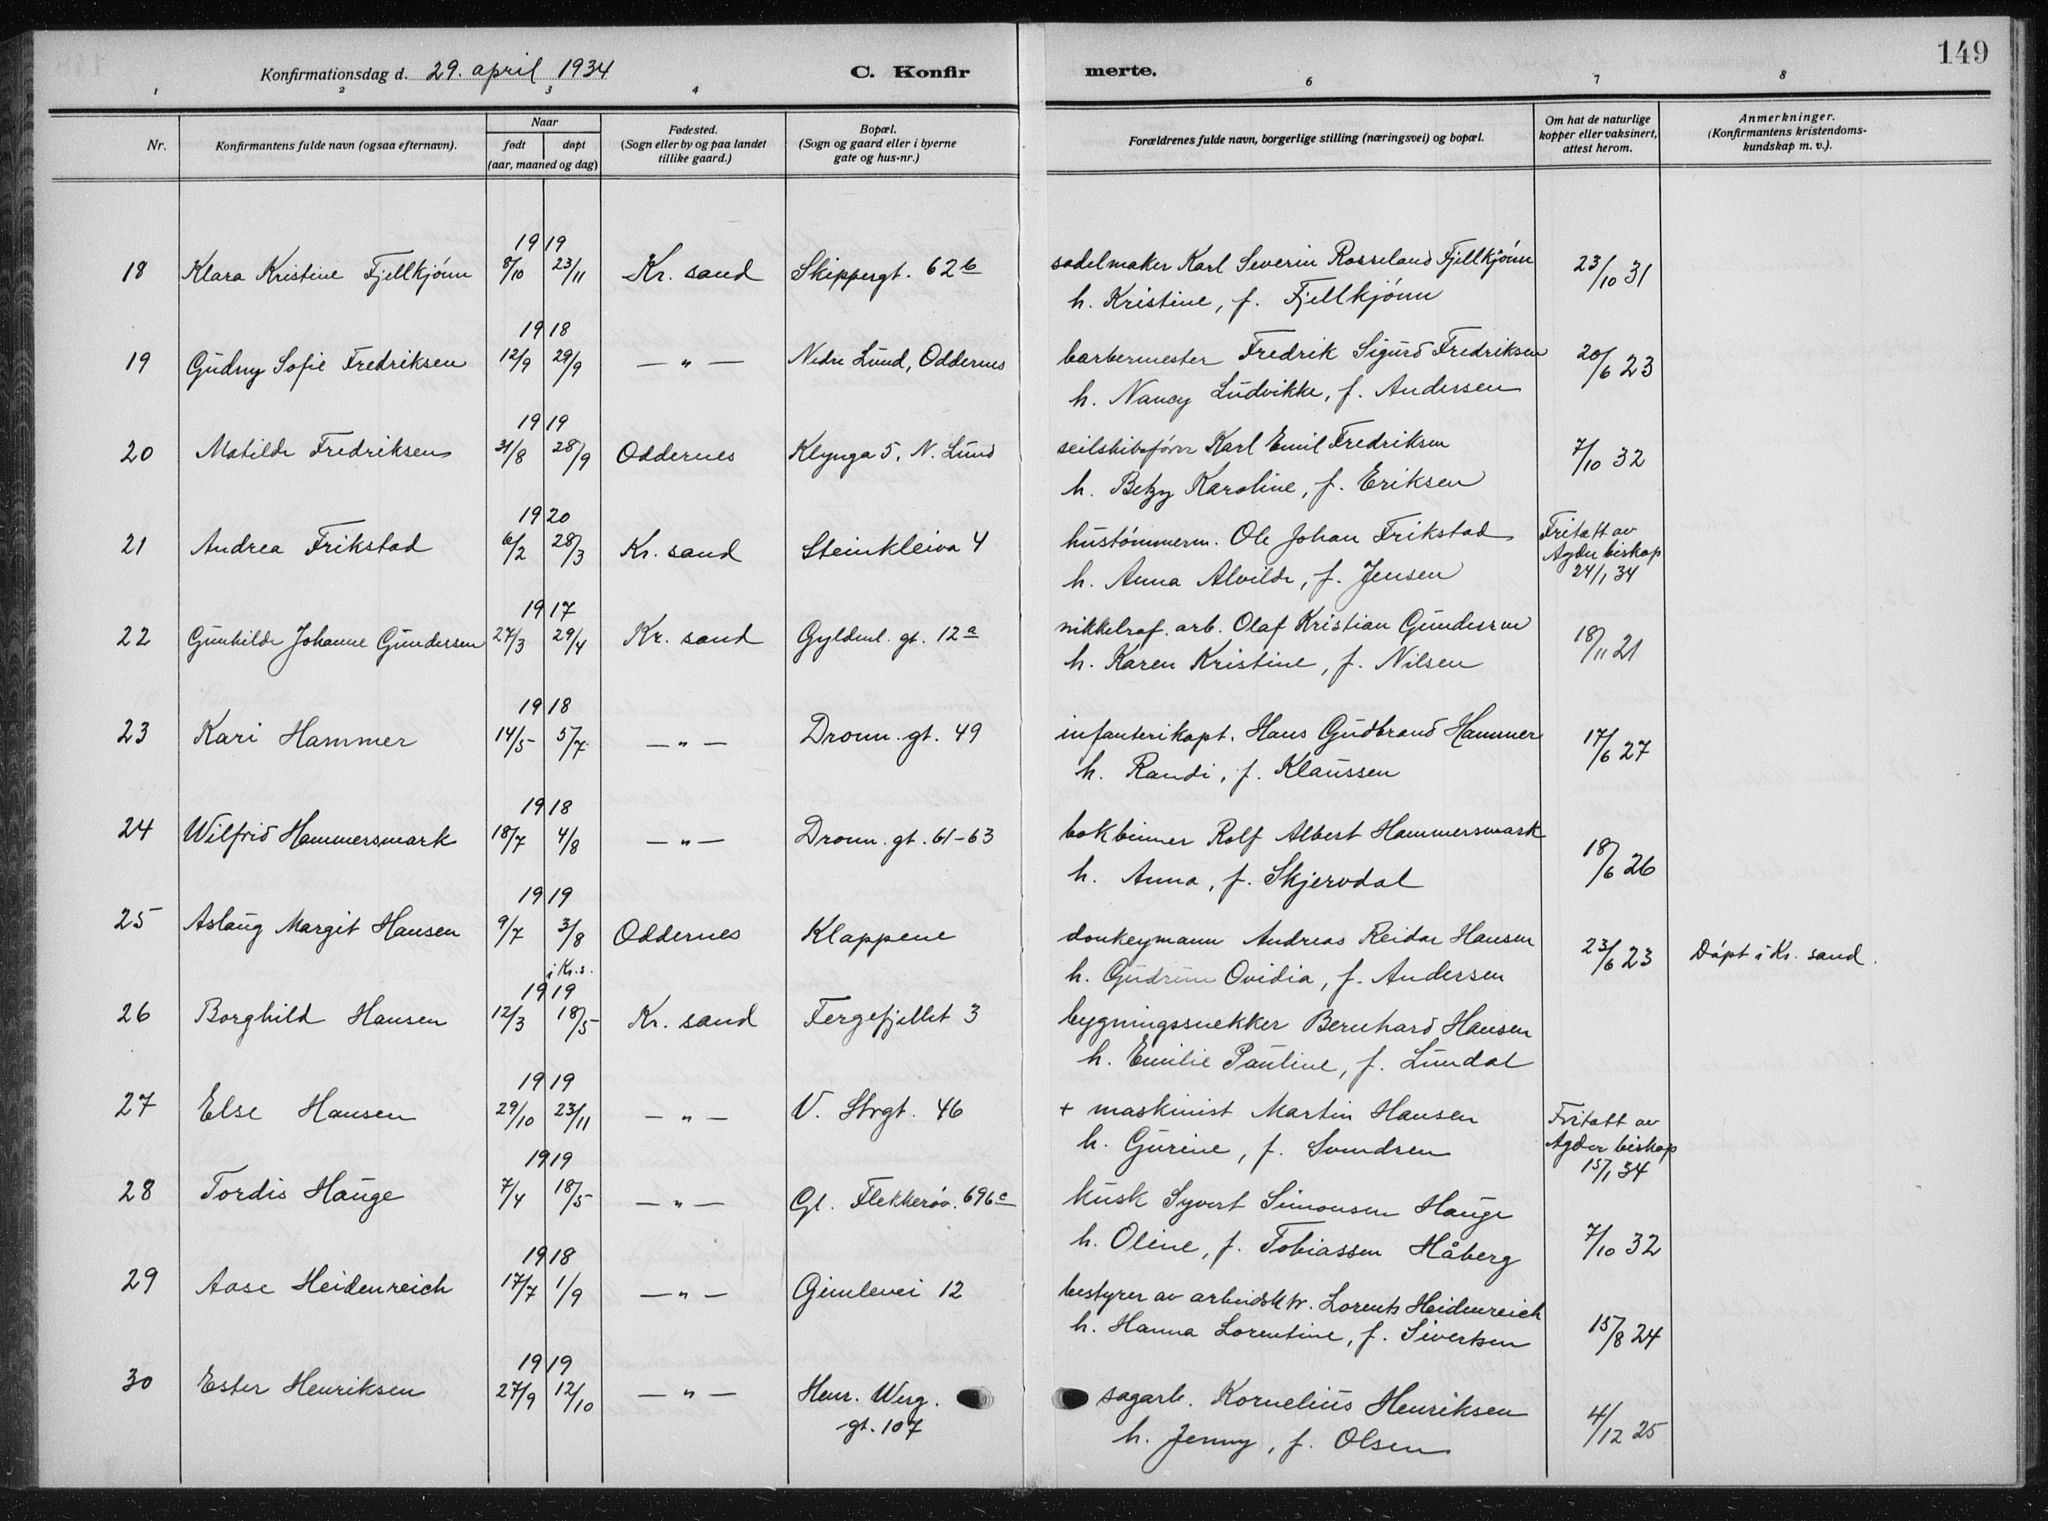 Konfirmationsdag d. 29. april 1934 C. Konfirmerte. 149
1 2 3 4 6 7 8
Nr.
Konfirmantens fulde navn (ogsaa efternavn).
Naar
født døpt
(aar, maaned og dag)
Fødested.
(Sogn eller by og paa landet
tillike gaard.)
Bopæl.
(Sogn og gaard eller i byerne
gate og hus-nr.)
Forældrenes fulde navn, borgerlige stilling (næringsvei) og bopæl.
Om hat de naturlige
kopper eller vaksinert,
attest herom.
Anmerkninger.
(Konfirmantens kristendoms-
kundskap m. v.).
1919
18 Klara Kristine Fjellkjønn 8/10 23/11 Kr. sand Skippergt. 62b sadelmaker Karl Severin Rosseland Fjellkjønn 23/10 31
h. Kristine, f. Fjellkjønn
1918
19 Gudny Sofie Fredriksen 12/9 29/9 — " — Nedre Lund, Oddernes barbermester Fredrik Sigurd Fredriksen 20/6 23
h. Nancy Ludvikke, f. Andersen
1919
20 Matilde Fredriksen 31/8 28/9 Oddernes Klynga 5, N. Lund seilskibsfører Karl Emil Fredriksen 7/10 32
h. Betzy Karoline, f. Eriksen
1920
21 Andrea Frikstad 6/2 28/3 Kr. sand Steinkleiva 4 hustømmerm. Ole Johan Frikstad Fritatt av
Agder biskop
h. Anna Alvilde, f. Jensen 24/1 34
1917
22 Gunhilde Johanne Gundersen 27/3 29/4 Kr. sand Gyldenl. gt. 12a nikkelraf. arb. Olaf Kristian Gundersen 18/11 21
h. Karen Kristine, f. Nilsen
1918
23 Kari Hammer 14/5 5/7 — " — Dronn. gt. 49 infanterikapt. Hans Gudbrand Hammer 17/6 27
h. Randi, f. Klaussen
1918
24 Wilfrid Hammersmark 18/7 4/8 — " — Dronn. gt. 61-63 bokbinner Rolf Albert Hammersmark 18/6 26
h. Anna, f. Skjervdal
1919
25 Aslaug Margit Hansen 9/7 3/8 Oddernes Klappene donkeymann Andreas Reidar Hansen 23/6 23 Døpt i Kr. sand.
i Kr.s. h. Gudrun Ovidia, f. Andersen
1919
26 Borghild Hansen 12/3 18/5 Kr. sand Fergefjellet 3 bygningssnekker Bernhard Hansen
h. Emilie Pauline, f. Lundal
1919
27 Else Hansen 29/10 23/11 — " — V. Strgt. 46 + maskinist Martin Hansen Fritatt av
Agder biskop
h. Gurine, f. Svendsen 15/1 34
1919
28 Tordis Hauge 7/4 18/5 — " — Gl. Flekkerøv. 696c kusk Syvert Simonsen Hauge
h. Oline, f. Tobiassen Håberg 7/10 32
1918
29 Aase Heidenreich 17/7 1/9 — " — Gimlevei 12 bestyrer av arbeidsktr. Lorents Heidenreich
h. Hanna Lorentine, f. Sivertsen 15/8 24
1919
30 Ester Henriksen 27/9 12/10 — " — Henr. Werg. sagarb. Kornelius Henriksen
gt. 107 h. Jenny, f. Olsen 4/12 25